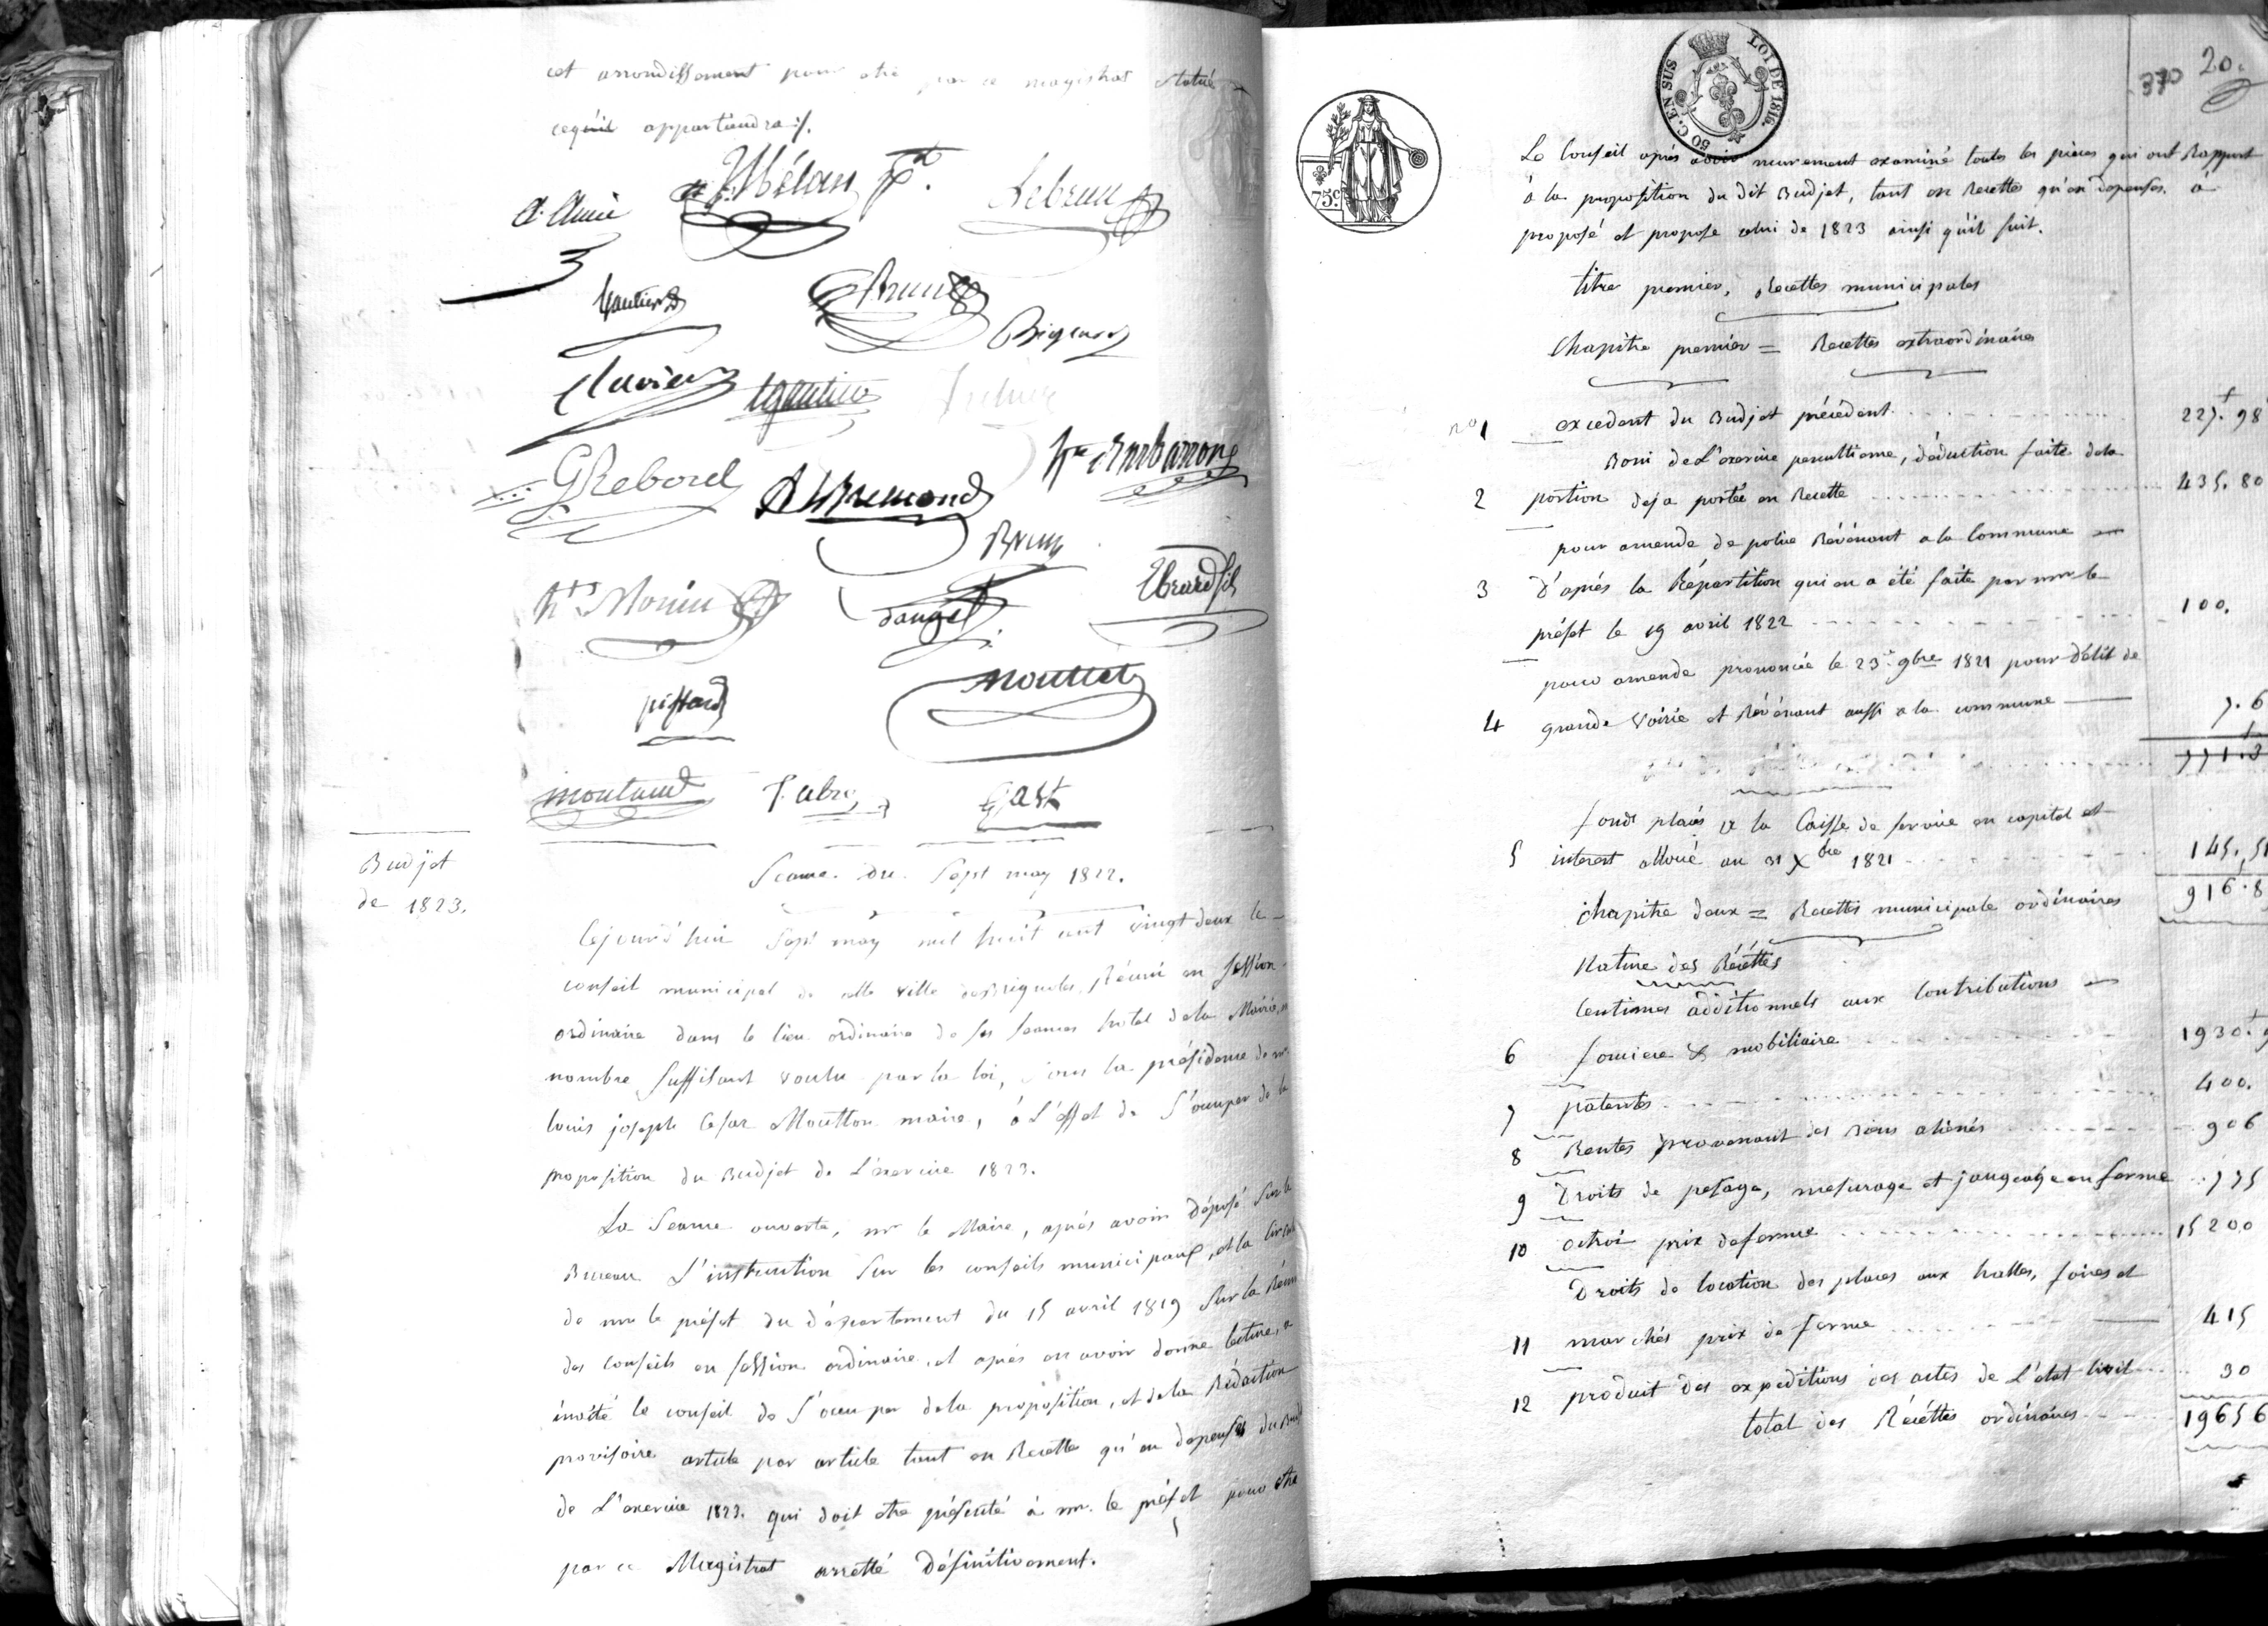 cet arrondissement pour etre par ce magistrat statué
cequ'il appartiendra ./.
Lebrun
Gautier
Brun
G Rebovel
Brun
hte Monin
dauzet
Ebrard fils
pissard
Mouttet
moutaud
Fabre
Gast
Budjet
de 1823.
Seance du Sept may 1822.
Cejourd'hui Sept may mil huit cent vingt deux le
conseil municipal de cette ville de Brignoles, Réuni en session
ordinaire dans le lieu ordinaire de ses seances hotel dela Mairie, en
nombre suffisant voulu par la loi, sous la présidence de mr.
louis joseph Cesar Moutton maire, à L'effet de s'occuper de la
proposition du Budjet de L'exercice 1823.
La Seance ouverte, mr le Maire, après avoir déposé sur le
Bureau L'instruction sur les conseils municipaux, et la
de mr le préfet du département du 15 avril 1819 sur la
des conseils en session ordinaire, et après en avoir donné lecture, a
invité le conseil de s'occuper dela proposition, et dela Rédaction
provisoire article par article tant en Recette qu'en depenses du
de L'exercice 1823. qui doit etre présenté à mr. le préfet pour etre
par ce Magistrat arretté définitivement.
50 C. EN SUS LOI DE 1816.
370 20.
75c
Le Conseil après avoir murement examiné toutes les pièces qui ont Rapport
à la proposition du dit Budjet, tant en Recette qu'en depenses. a
proposé et propose celui de 1823 ainsi qu'il suit.
titre premier, Recettes municipales
Chapitre premier = Recettes extraordinaires
no 1 excedent du Budjet précédent 227. 98
Boni de L'exercice penultieme, déduction faite dela
2 portion deja portée en Recette 435. 80
pour amende de police Révénant a la Commune
3 D'après la Répartition qui en a été faite par mr le
préfet le 19 avril 1822 100.
pour amende prononcée le 23 9bre 1821 pour délit de
4 grande voirie et Révénant aussi a la commune 7. 6
771. 3
fonds placés a la Caisse de service en capital et
5 interest alloué au 31 Xbre 1821 145. 51
916. 8
chapitre deux = Recettes municipale ordinaires
Nature des Récéttes
Centimes additionnels aux Contributions
6 fonciere & mobiliaire 1930. 9
7 patentes 400.
8 Rentes provenant des Biens aliénés 906
9 Droits de pesage, mesurage et jaugeage en ferme 775
10 octroi prix de ferme 15200
Droits de location des places aux halles, foires et
11 marchés prix de ferme 415
12 produit des expeditions des actes de L'état civil 30
total des Récéttes ordinaires 19656